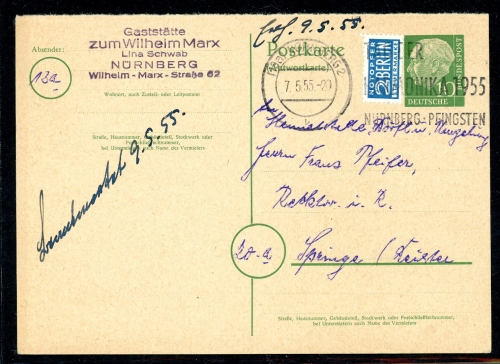 Absender:
Gaststätte
zum Wilhelm Marx
Lina Schwab
NÜRNBERG
Wilhelm - Marx - Straße 62
13a
Wohnort, auch Zustell- oder Leitpostamt
Straße, Hausnummer, Gebäudeteil, Stockwerk oder
Postschließfachnummer,
bei Untermietern auch Name des Vermieters
9. 5. 55.
9. 5. 55.
Postkarte
(Antwortkarte)
7. 5. 55 -20
NOTOPFER
2 BERLIN
STEUERMARKE
DEUTSCHE
BUNDESPOST
10
ER
ONIKA 1955
NÜRNBERG - PFINGSTEN
Herrn Franz Pfeifer,
Rektor i. R.
20-a
Springe / Deister
Straße, Hausnummer, Gebäudeteil, Stockwerk oder Postschließfachnummer,
bei Untermietern auch Name des Vermieters